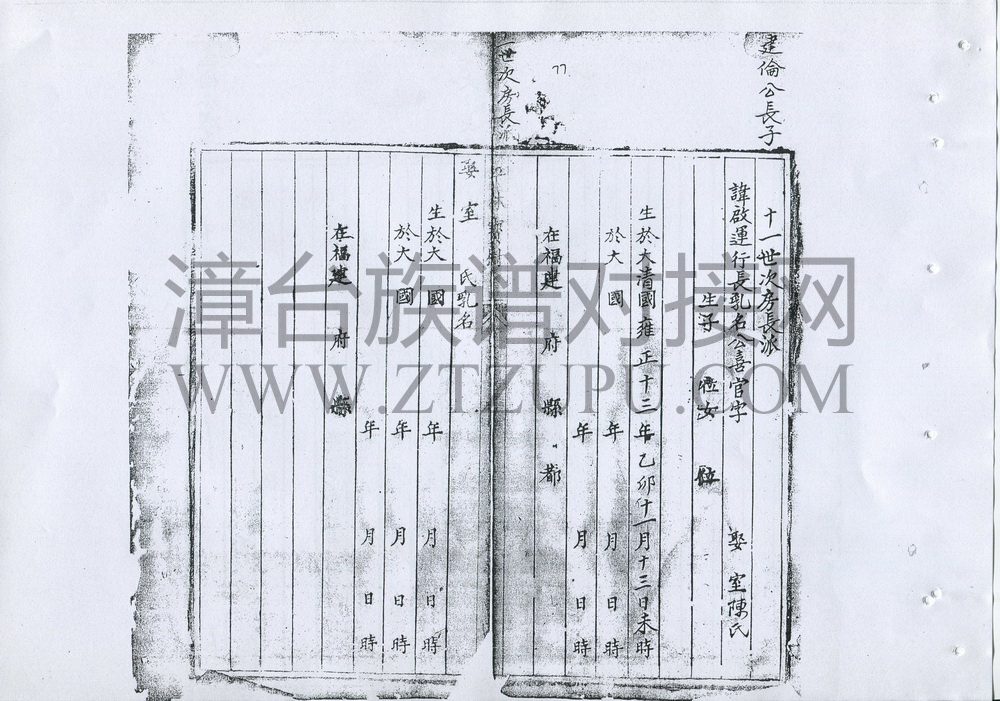 建倫公長子
十一世次房長派
諱啟運行長乳名公喜官字 娶 室陳氏
生子 位女 位
生於大清國雍正十三年乙卯十一月十三日未時
於大 國 年 月 日 時
年 月 日 時
在福建 府 縣 都
77
世次房長派
娶 室 氏乳名
生於大 國 年 月 日 時
於大 國 年 月 日 時
年 月 日 時
在福建 府 縣
漳台族谱对接网
WWW.ZTZUPU.COM